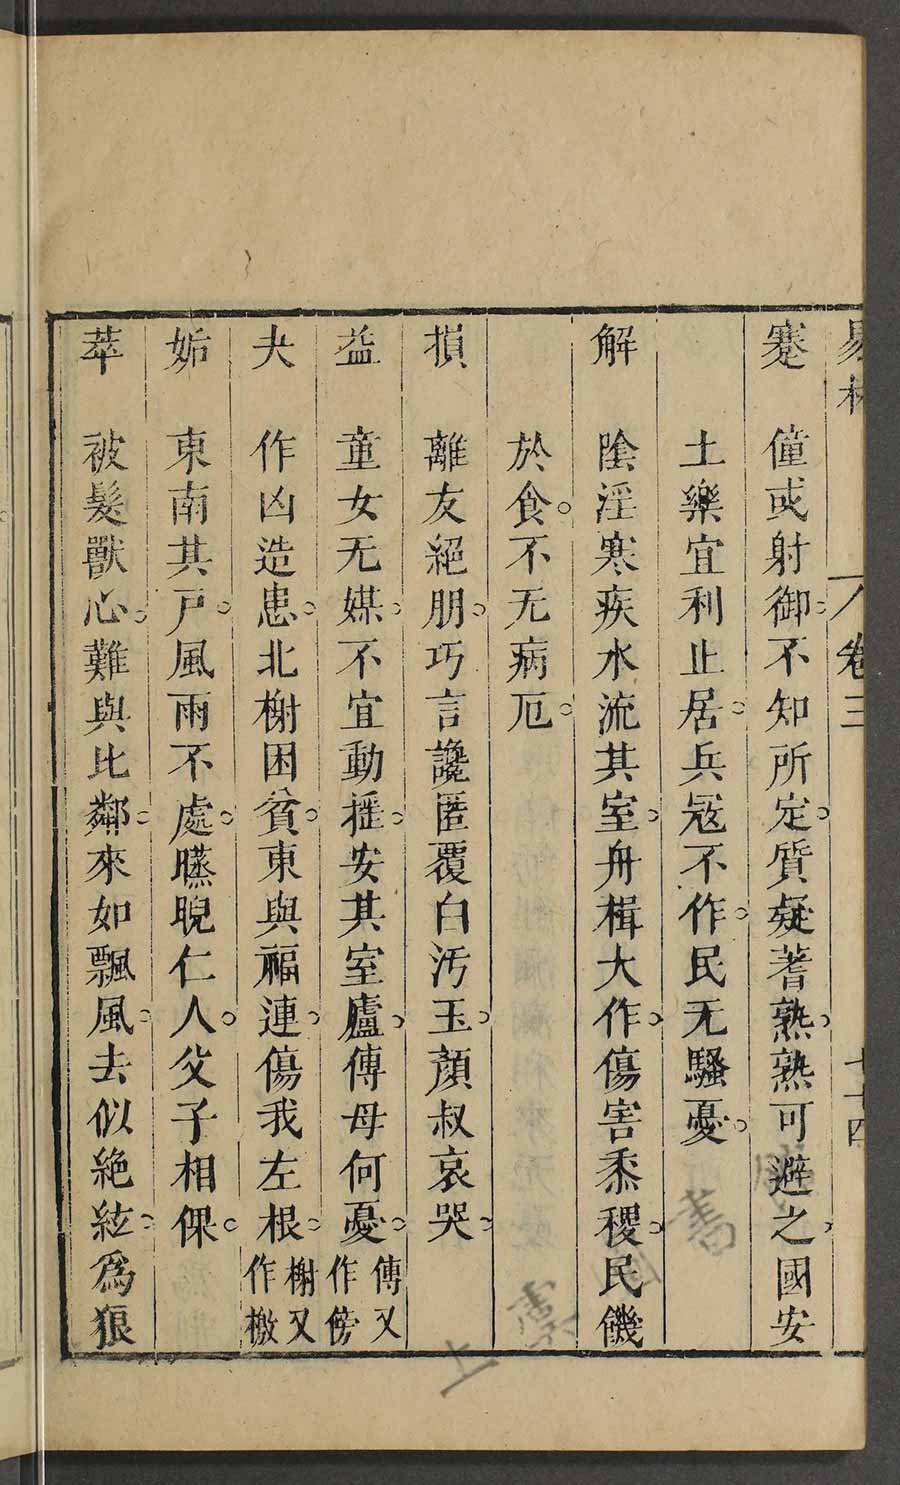 易林 卷三 七十四
蹇 僮或射御不知所定質疑蓍熟熟可避之國安
土樂宜利止居兵寇不作民无騷憂
解 陰淫寒疾水流其室舟楫大作傷害黍稷民饑
於食不无病厄
損 離友絕朋巧言讒匿覆白汚玉顏叔哀哭
益 童女无媒不宜動摇安其室廬傅母何憂 傅又作傍
夬 作凶造患北榭困貧東與福連傷我左根 榭又作檄
姤 東南其戸風雨不處曣晛仁人父子相保
萃 被髮獸心難與比鄰來如飄風去似絶絃爲狼